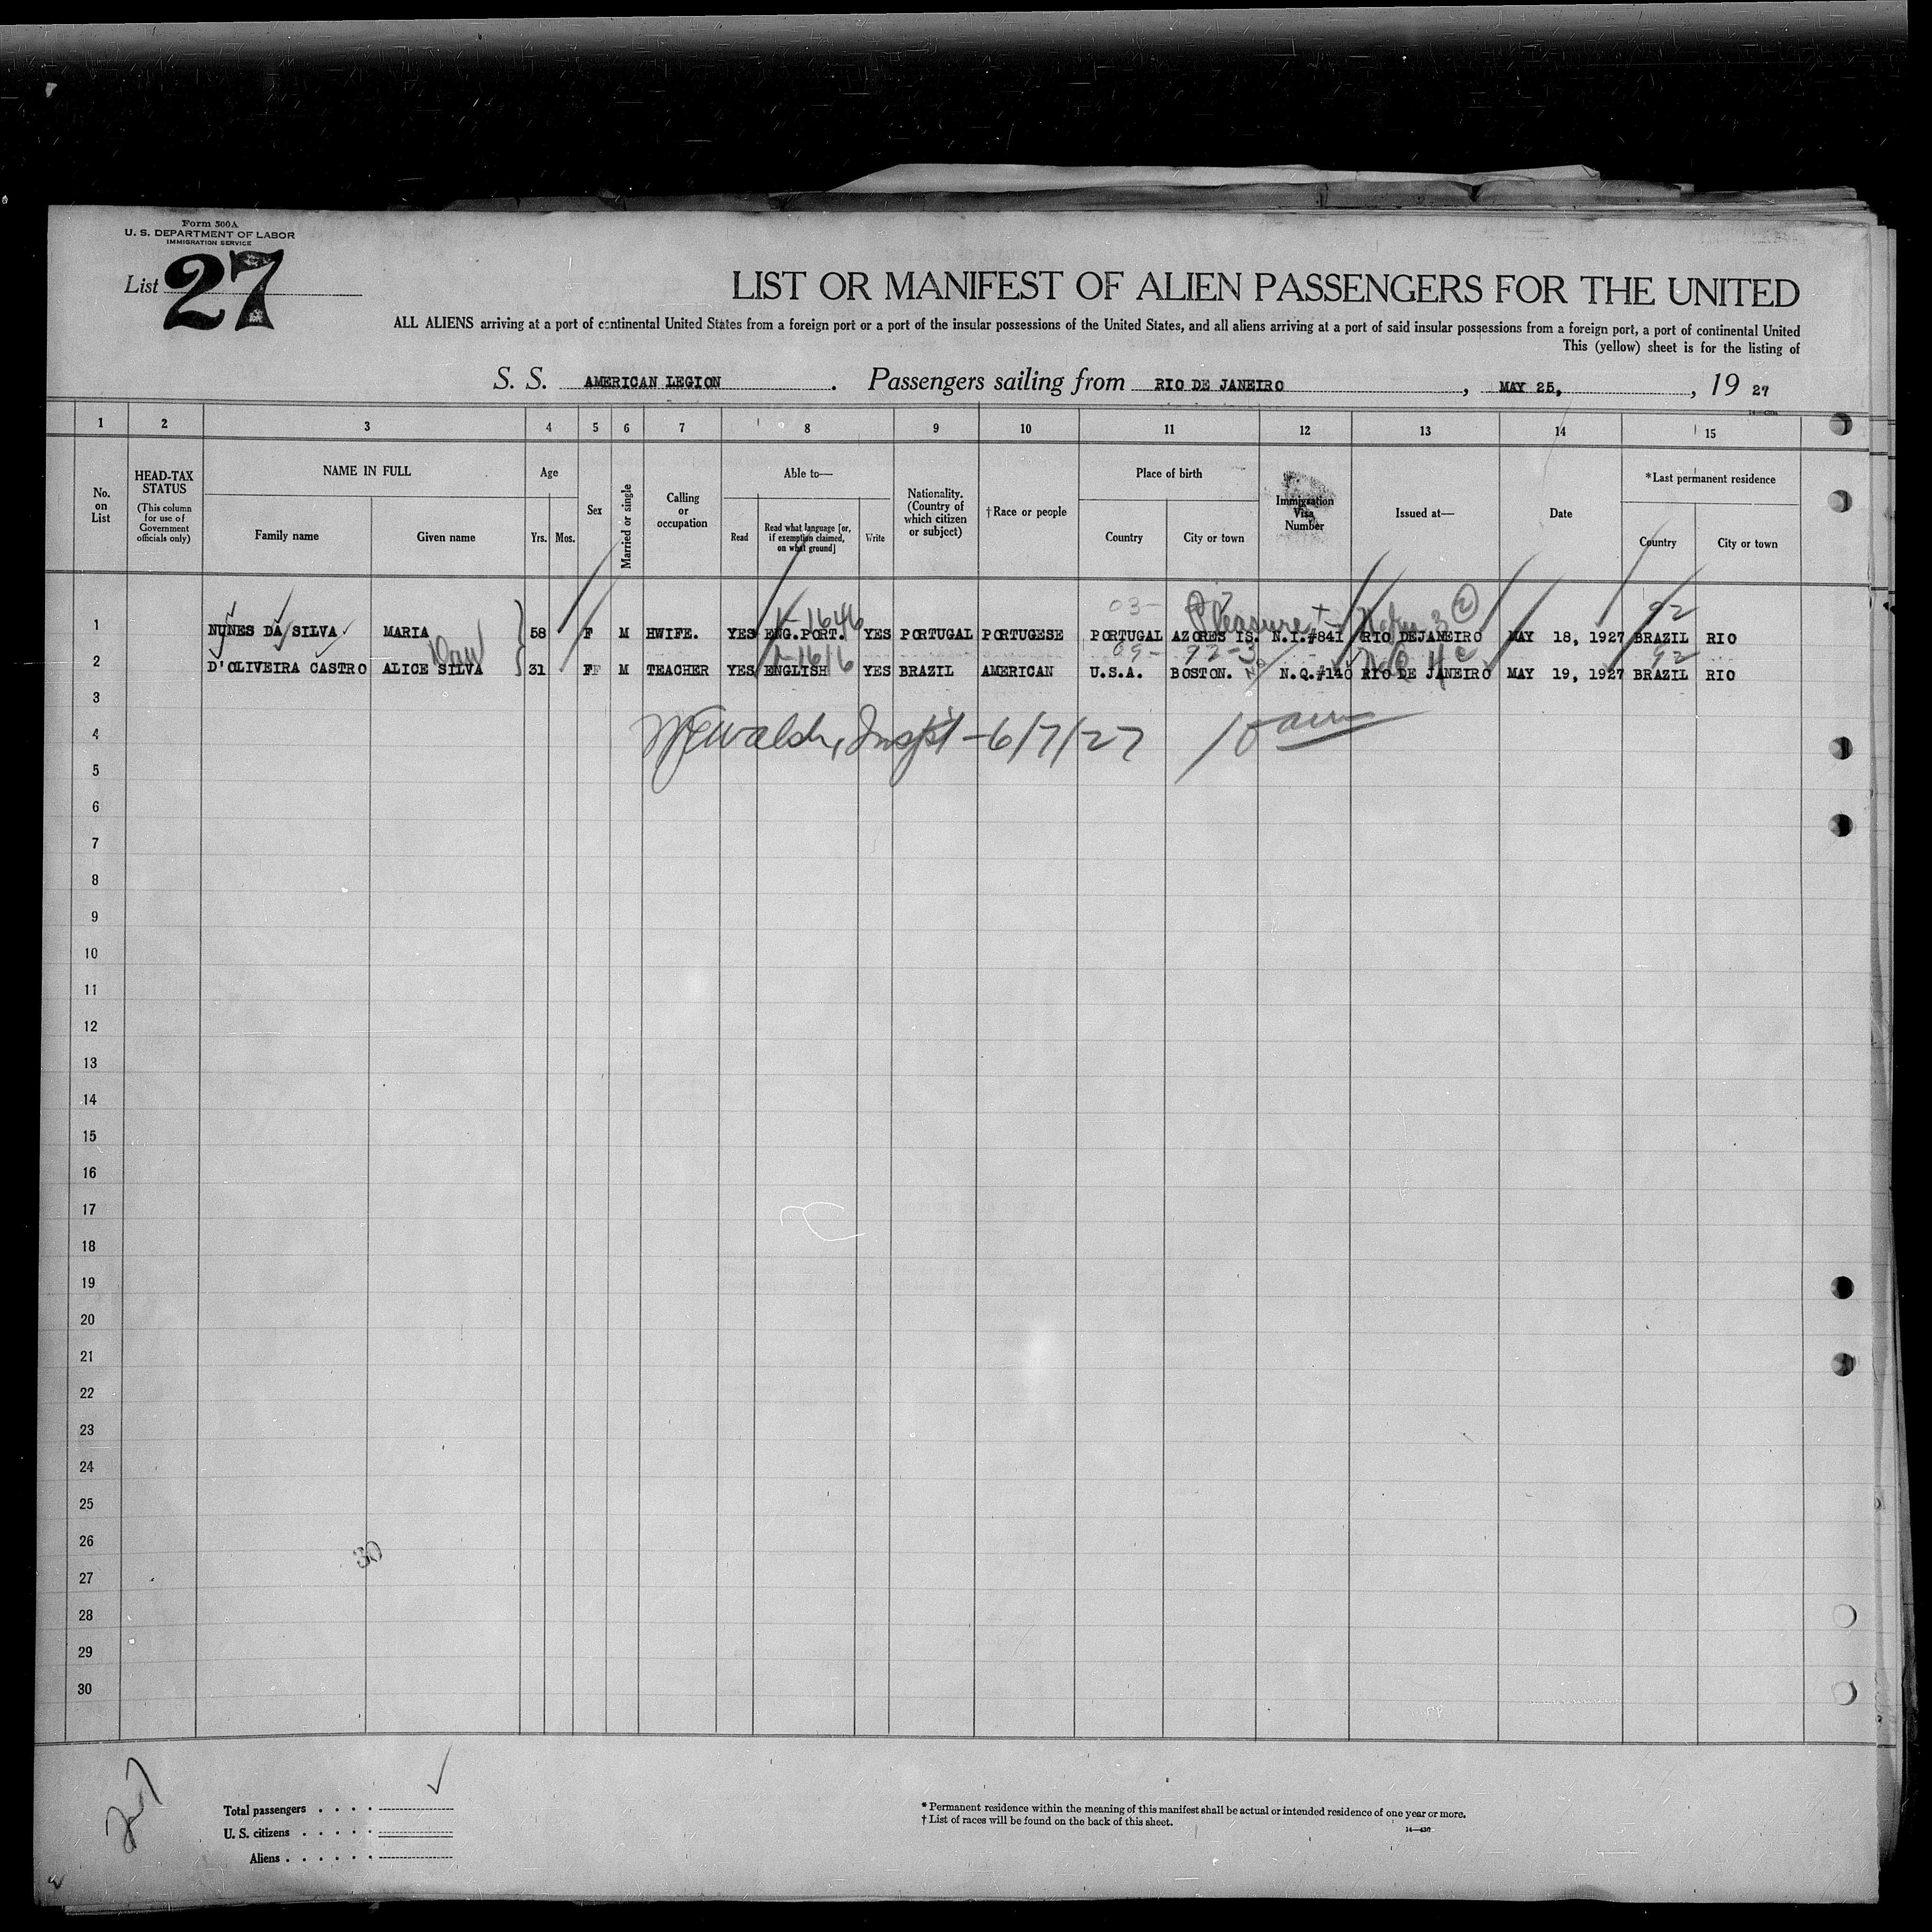 Form 500A
U. S. DEPARTMENT OF LABOR
IMMIGRATION SERVICE
List 27
LIST OR MANIFEST OF ALIEN PASSENGERS FOR THE UNITED
ALL ALIENS arriving at a port of continental United States from a foreign port or a port of the insular possessions of the United States, and all aliens arriving at a port of said insular possessions from a foreign port, a port of continental United
This (yellow) sheet is for the listing of
S. S. AMERICAN LEGION. Passengers sailing from RIO DE JANEIRO, MAY 25, , 19 27
1 2 3 4 5 6 7 8 9 10 11 12 13 14 15
No. on List
HEAD-TAX STATUS
(This column for use of Government officials only)
NAME IN FULL
Family name
Given name
Age
Yrs. Mos.
Sex
Married or single
Calling or occupation
Able to—
Read
Read what language [or, if exemption claimed, on what ground]
Write
Nationality. (Country of which citizen or subject)
† Race or people
Place of birth
Country
City or town
Immigration Visa Number
Issued at—
Date
*Last permanent residence
Country
City or town
03- Pleasure 92
1-1646
1 NUNES DA SILVA MARIA 58 F M HWIFE. YES ENG.PORT. YES PORTUGAL PORTUGESE PORTUGAL AZORES IS. N.I.#841 RIO DEJANEIRO MAY 18, 1927 BRAZIL RIO
1-1616 09- 92-3 92
2 D'OLIVEIRA CASTRO ALICE SILVA 31 F M TEACHER YES ENGLISH YES BRAZIL AMERICAN U.S.A. BOSTON. N.Q.#140 RIO DE JANEIRO MAY 19, 1927 BRAZIL RIO
3
4 Inspt - 6/7/27
5
6
7
8
9
10
11
12
13
14
15
16
17
18
19
20
21
22
23
24
25
26
30
27
28
29
30
Total passengers . . . .
U. S. citizens . . . . .
Aliens . . . . . .
* Permanent residence within the meaning of this manifest shall be actual or intended residence of one year or more.
† List of races will be found on the back of this sheet.
14—430